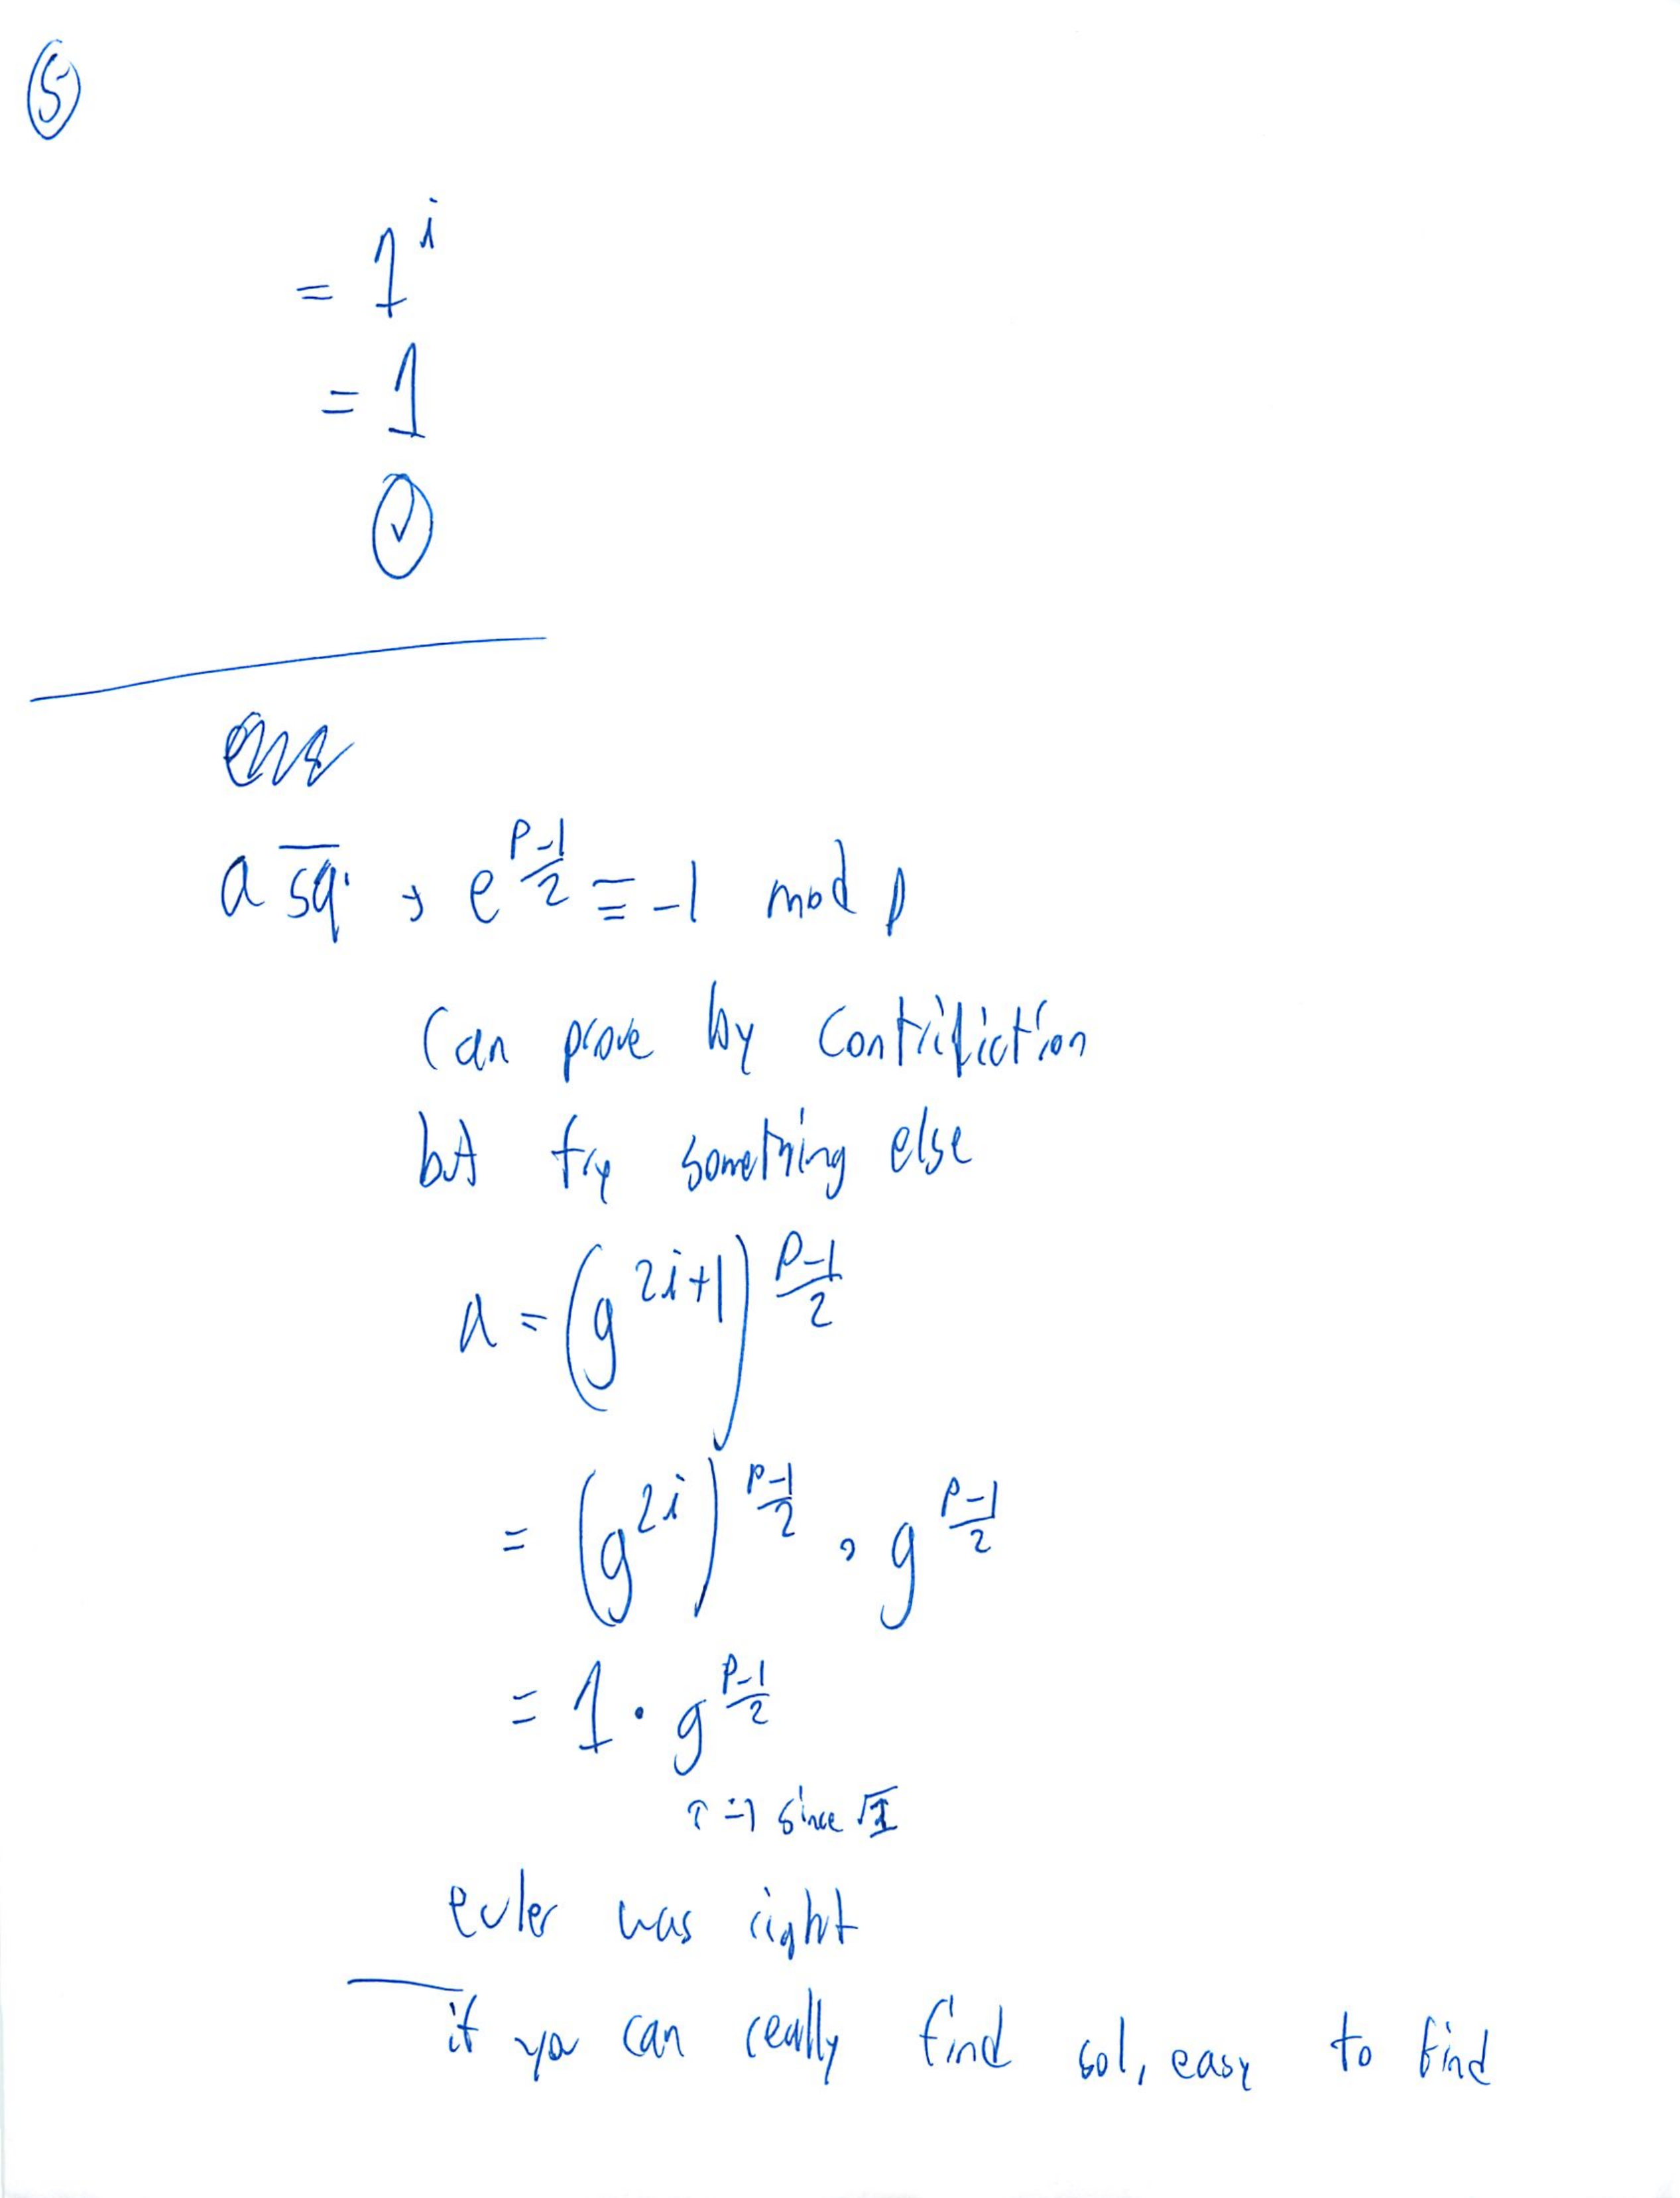 ⑤
= 1^i
= 1
✓
a \overline{sq} , e^{\frac{p-1}{2}} ≡ -1 mod p
Can prove by
but try something else
a = (g^{2i+1})^{\frac{p-1}{2}}
= (g^{2i})^{\frac{p-1}{2}} · g^{\frac{p-1}{2}}
= 1 · g^{\frac{p-1}{2}}
since √1
euler was right
if you can really find sol, easy to find